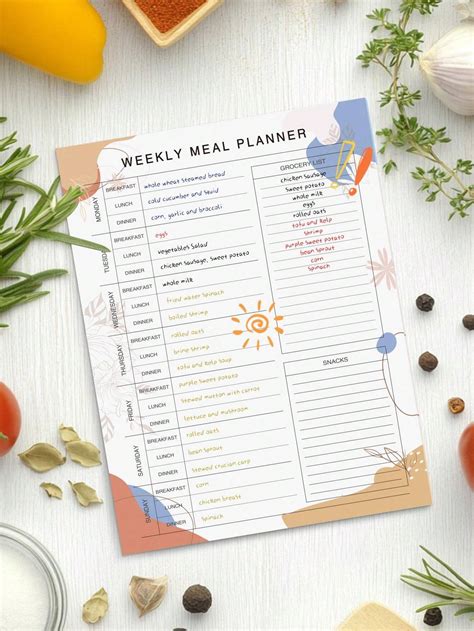 WEEKLY MEAL PLANNER
MONDAY
BREAKFAST whole wheat steamed bread
LUNCH cold cucumber and squid
DINNER corn, garlic and broccoli
TUESDAY
BREAKFAST eggs
LUNCH vegetables salad
DINNER chicken sausage, sweet potato
WEDNESDAY
BREAKFAST whole milk
LUNCH fried water spinach
DINNER boiled shrimp
THURSDAY
BREAKFAST rolled oats
LUNCH brine shrimp
DINNER tofu and kelp soup
FRIDAY
BREAKFAST purple sweet potato
LUNCH stewed mutton with carrote
DINNER lettuce and mushroom
SATURDAY
BREAKFAST rolled oats
LUNCH
DINNER stewed crucian carp
SUNDAY
BREAKFAST corn
LUNCH chicken breast
DINNER spinach
GROCERY LIST
chicken sausage
sweet potato
whole milk
eggs
rolled oats
tofu and kelp
shrimp
purple sweet potato
bean sprout
corn
spinach
SNACKS